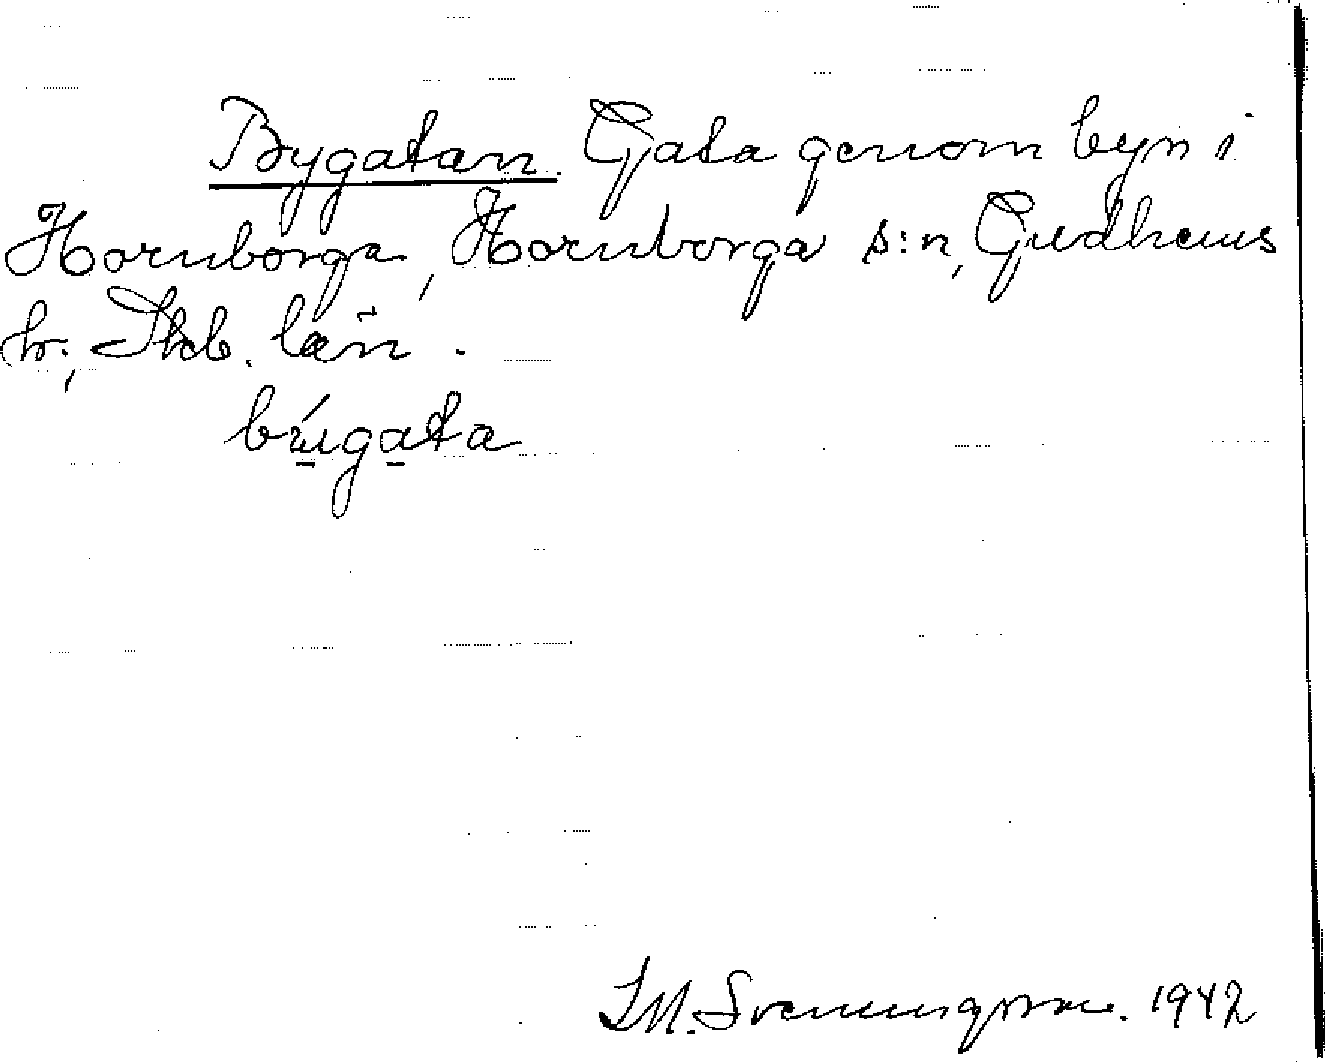 Bygatan. Gata genom byn i
Hornborga, Hornborga s:n, Gudhems
hr, Skb. län.
býgata
S.M. Svenungsson. 1942